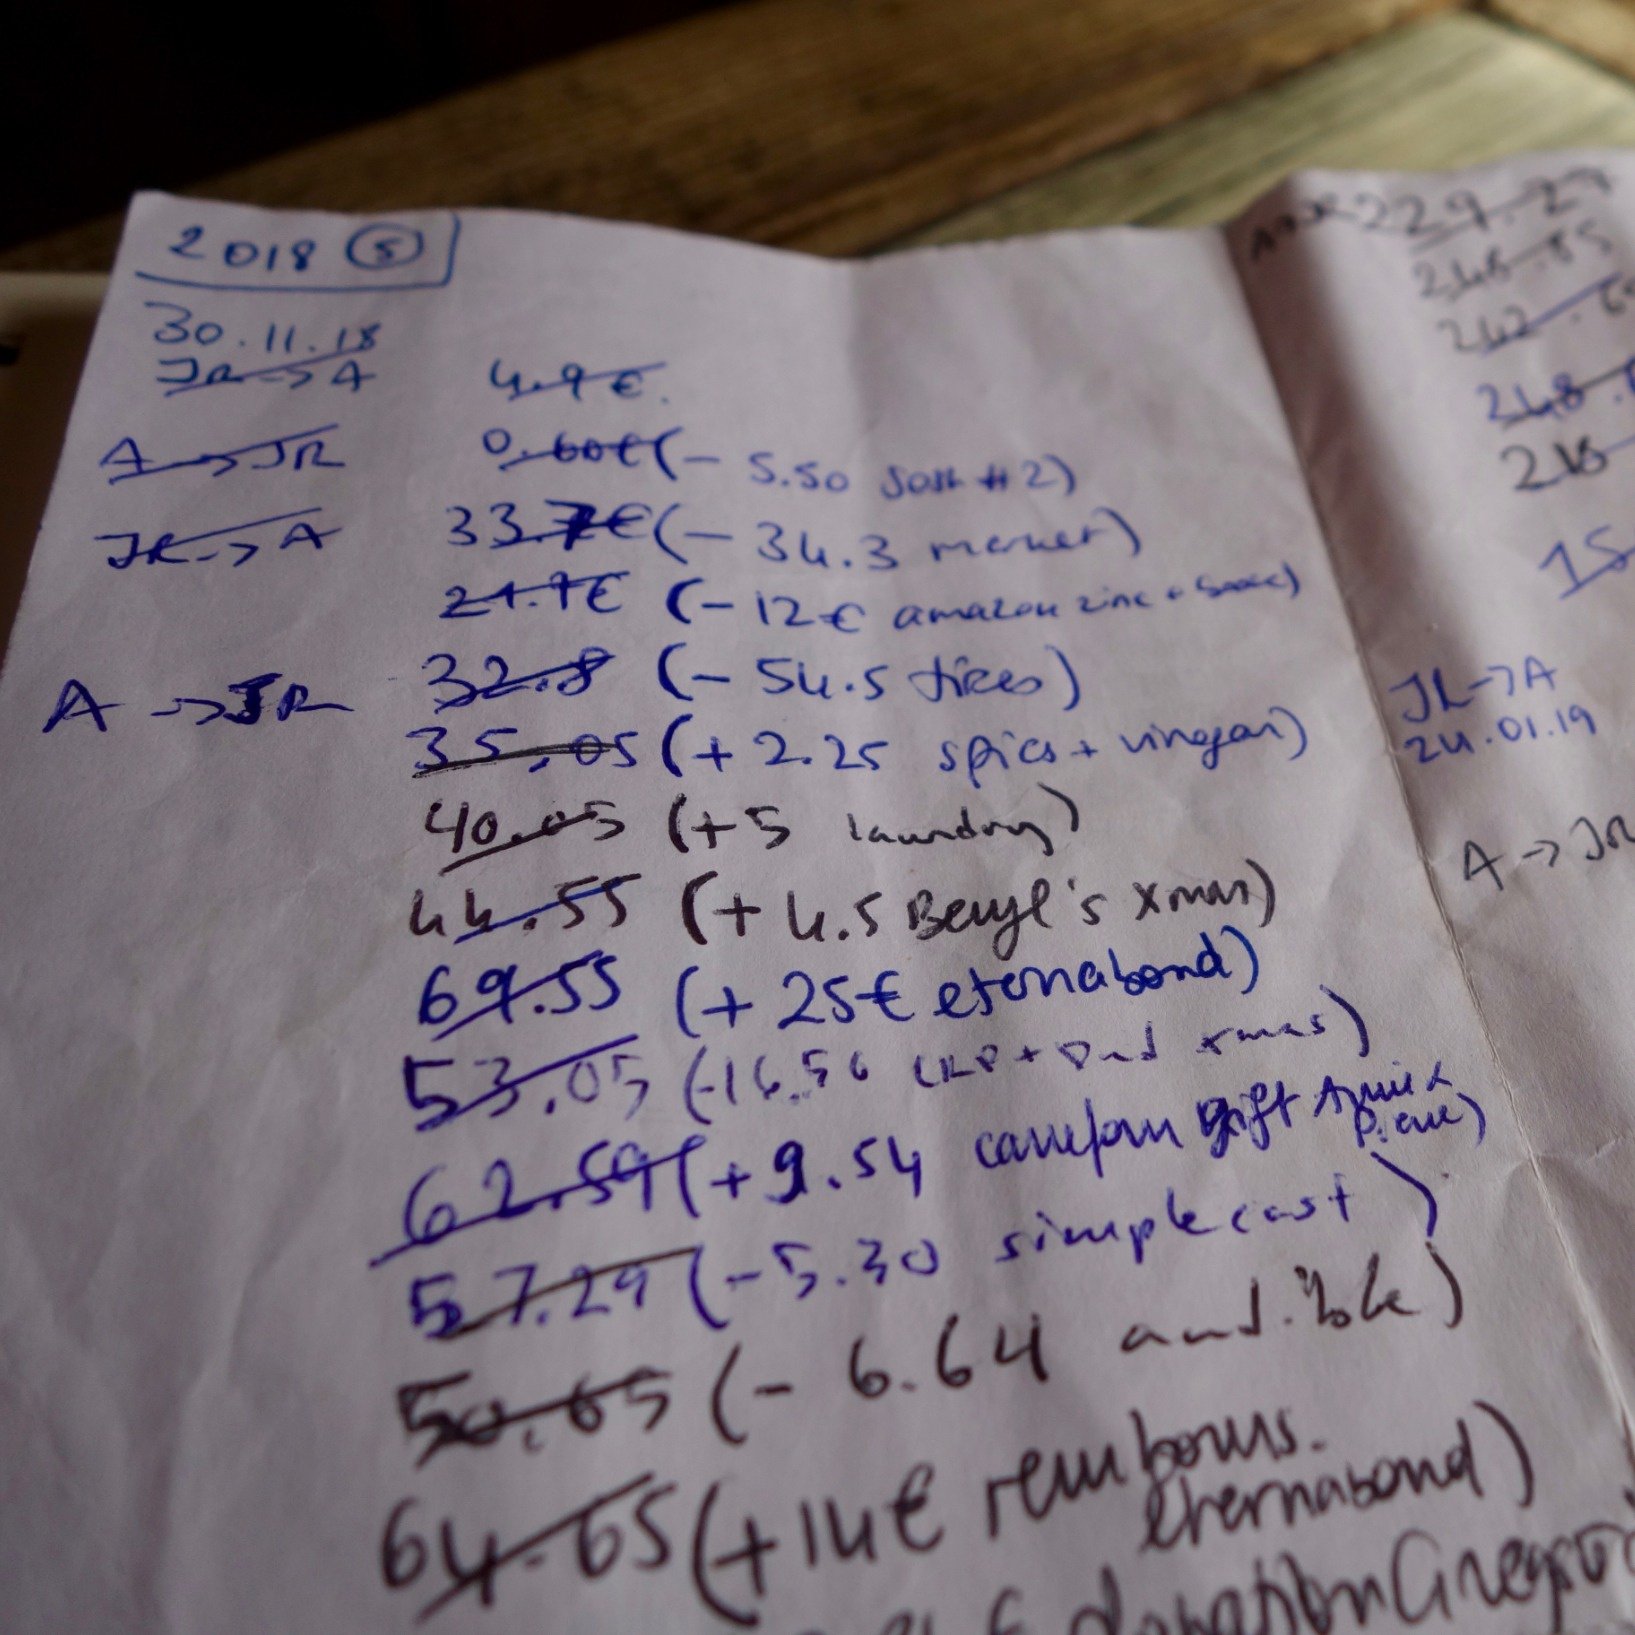 2018 5
30.11.18
JR -> A 4.9€.
A -> JR 0.60€ (- 5.50 Josh #2)
JR -> A 33.7€ (- 34.3 market)
21.7€ (- 12€ amazon zinc +
32.8 (- 54.5 tires)
A -> JR
35.05 (+ 2.25 spices + vinegar)
40.05 (+5 laundry)
44.55 (+ 4.5 Beryl's xmas)
69.55 (+ 25€ eternabond)
53.05 (-16.50 + Dad xmas)
62.59 (+ 9.54 carrefour gift Annie &
Pierre)
57.29 (- 5.30 simplecast)
50.65 (- 6.64 audible)
64.65 (+14€ rembours.
eternabond)
€ donation
229.29
246.85
242.
248.
218
15
JR -> A
24.01.19
A -> JR